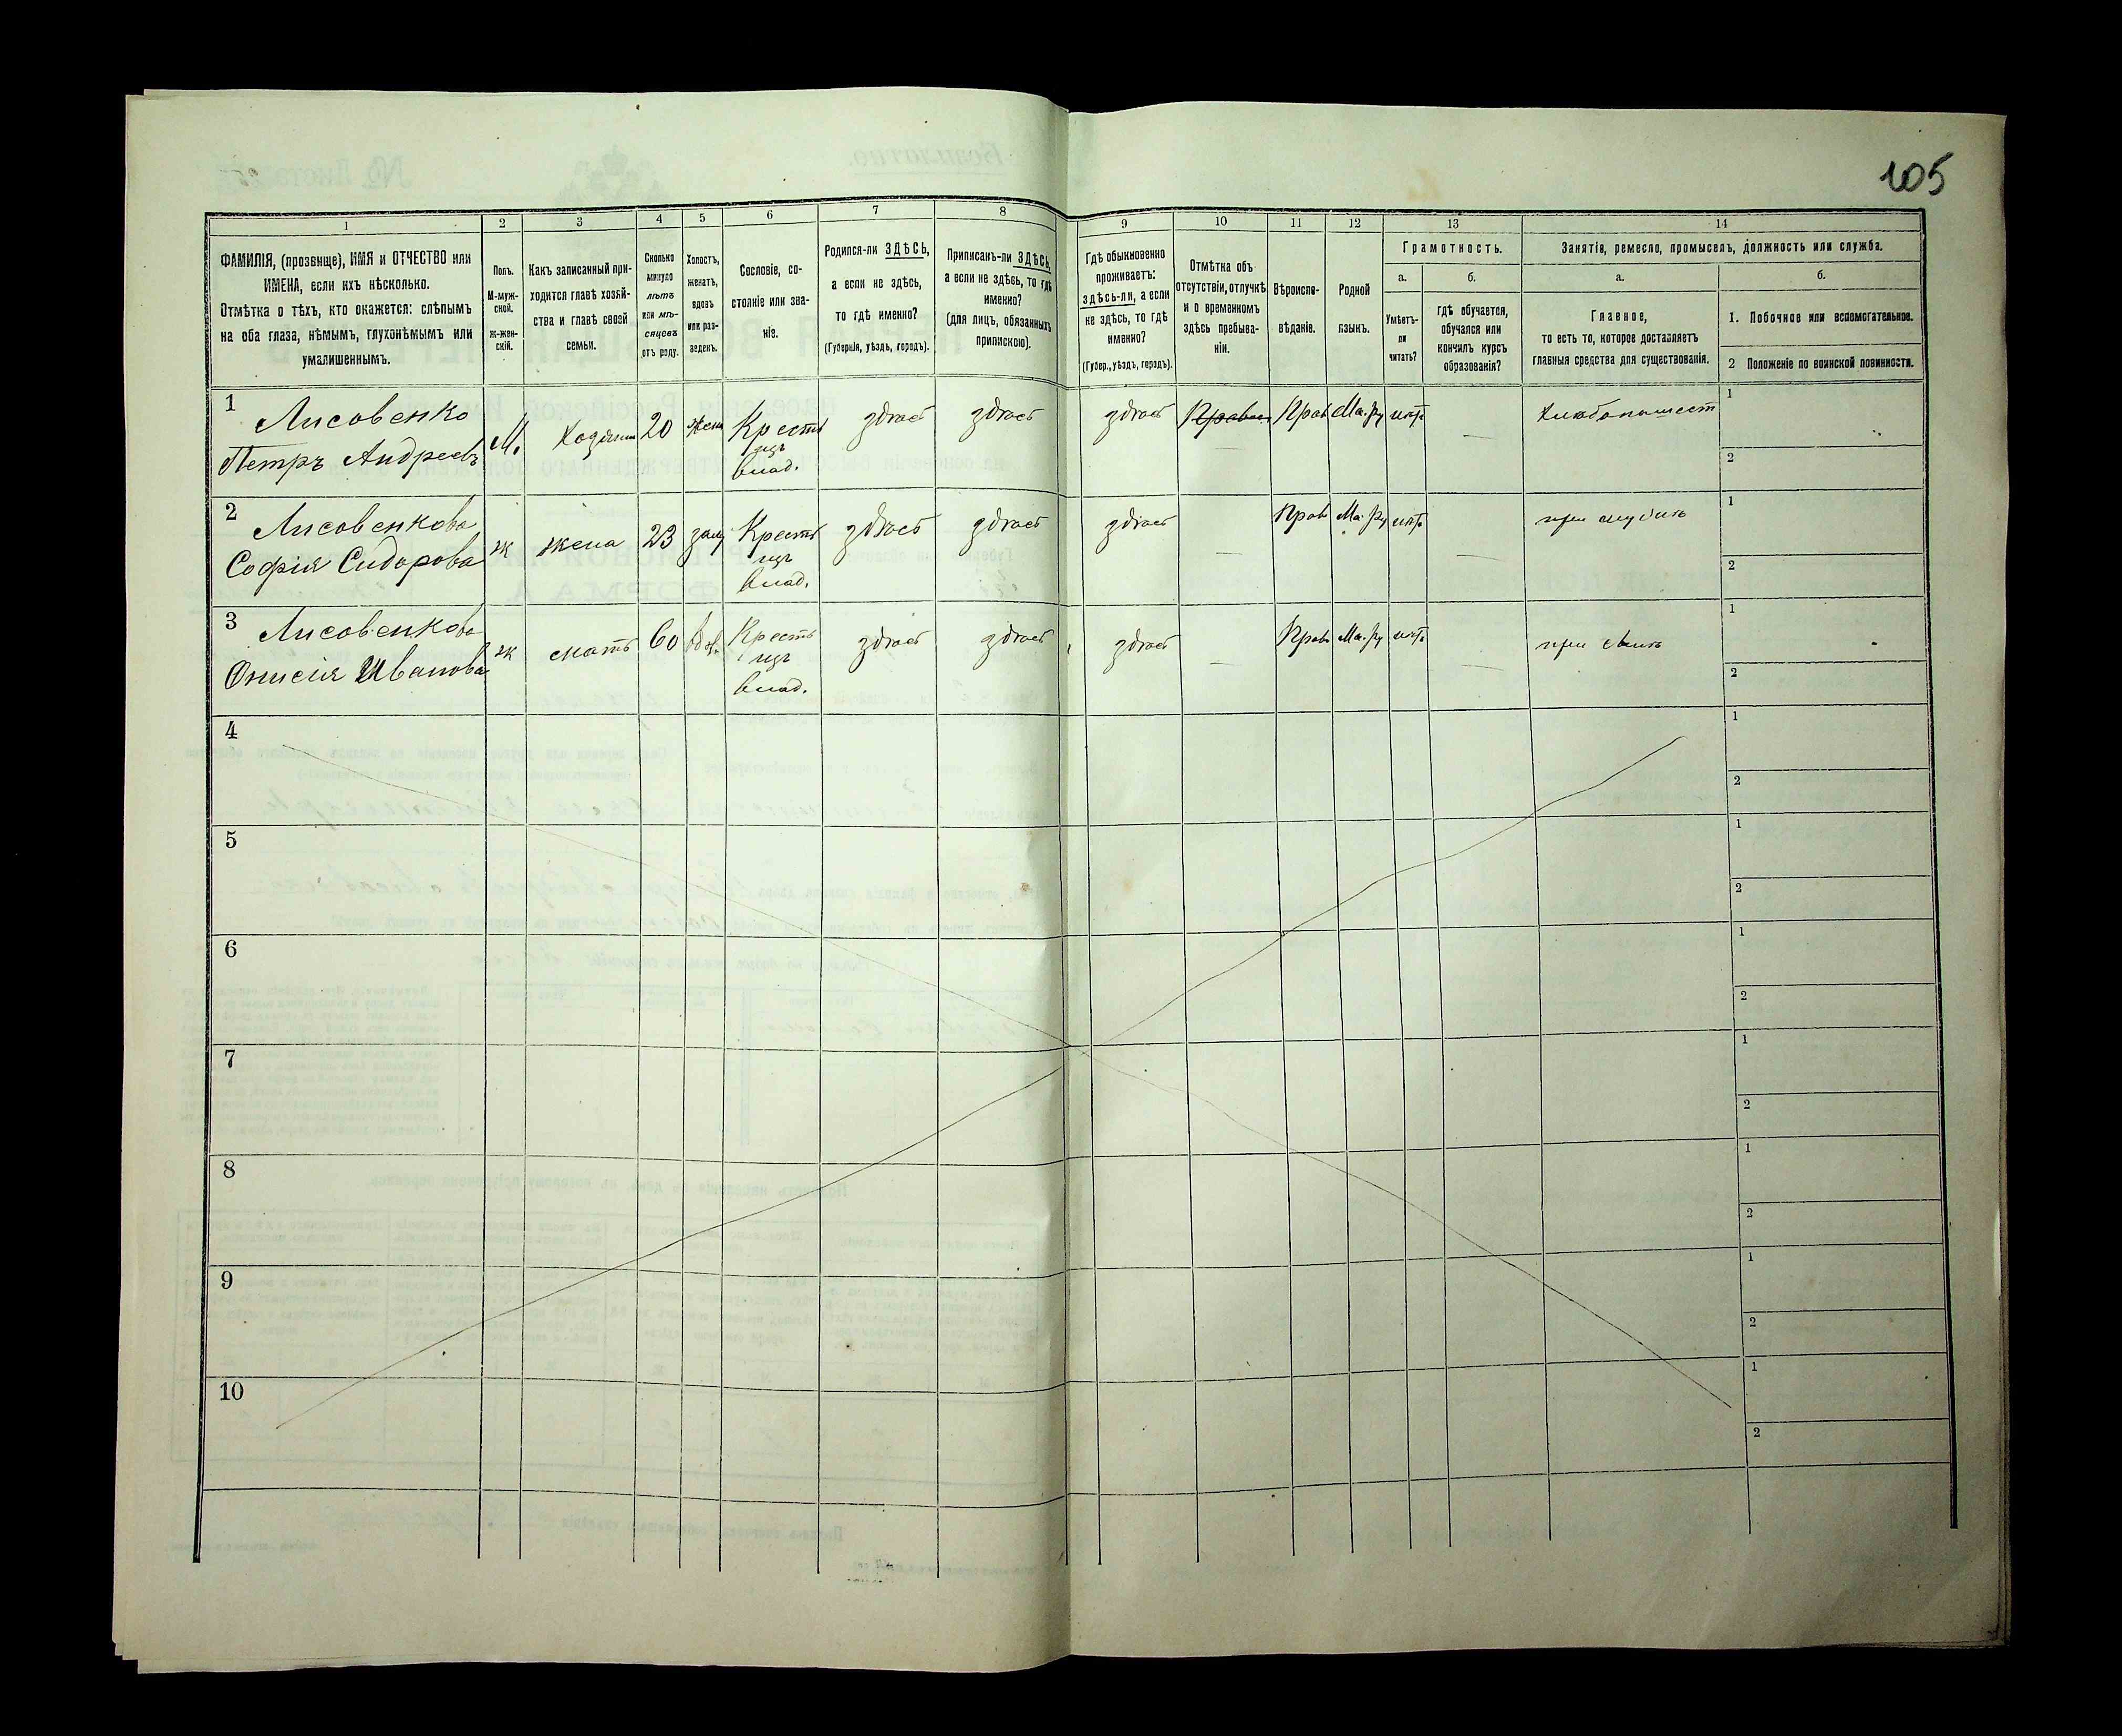 105
1 2 3 4 5 6 7 8 9 10 11 12 13 14
ФАМИЛІЯ, (прозвище), ИМЯ и ОТЧЕСТВО или
ИМЕНА, если ихъ нѣсколько.
Отмѣтка о тѣхъ, кто окажется: слѣпымъ
на оба глаза, нѣмымъ, глухонѣмымъ или
умалишеннымъ.
Полъ.
М-муж-
ской.
ж-жен-
скій.
Какъ записанный при-
ходится главѣ хозяй-
ства и главѣ своей
семьи.
Сколько
минуло
лѣтъ
или мѣ-
сяцевъ
отъ роду.
Холостъ,
женатъ,
вдовъ
или раз-
веденъ.
Сословіе, со-
стояніе или зва-
ніе.
Родился-ли ЗДѢСЬ,
а если не здѣсь,
то гдѣ именно?
(Губернія, уѣздъ, городъ).
Приписанъ-ли ЗДѢСЬ,
а если не здѣсь, то гдѣ
именно?
(для лицъ, обязанныхъ
припискою).
Гдѣ обыкновенно
проживаетъ:
здѣсь-ли, а если
не здѣсь, то гдѣ
именно?
(Губер., уѣздъ, городъ).
Отмѣтка объ
отсутствіи, отлучкѣ
и о временномъ
здѣсь пребыва-
ніи.
Вѣроиспо-
вѣданіе.
Родной
языкъ.
Грамотность.
а.
Умѣетъ-
ли
читать?
б.
гдѣ обучается,
обучался или
кончилъ курсъ
образованія?
Занятія, ремесло, промыселъ, должность или служба.
а.
Главное,
то есть то, которое доставляетъ
главныя средства для существованія.
б.
1. Побочное или вспомогательное.
2 Положеніе по воинской повинности.
1 Лисовенко
Петръ Андреевъ
М. Хозяинъ 20 жен
Крестъ
изъ
влад.
здѣсь здѣсь здѣсь Правос. Прав Ма.ру нѣтъ — хлѣбопашест
1
2
2 Лисовенкова
Софія Сидорова
ж жена 23 зам
Крестъ
изъ
влад.
здѣсь здѣсь здѣсь — Прав Ма.ру нѣтъ — при мужѣ
1
2
3 Лисовенкова
Онисія Иванова
ж мать 60 вдов.
Крестъ
изъ
влад.
здѣсь здѣсь здѣсь — Прав Ма.ру нѣтъ — при сынѣ
1
2
4
1
2
5
1
2
6
1
2
7
1
2
8
1
2
9
1
2
10
1
2